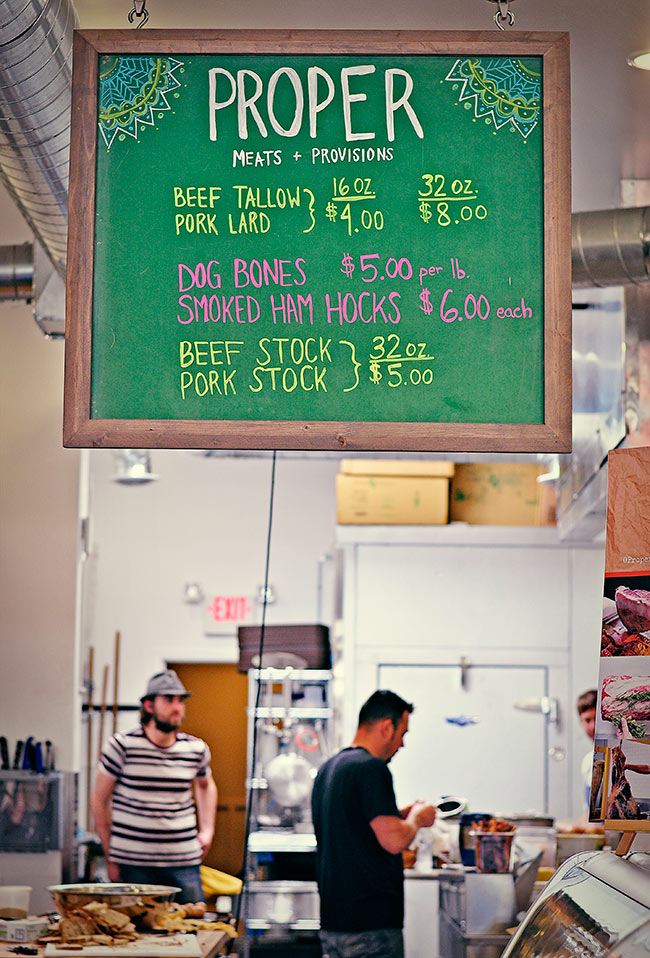 PROPER
MEATS + PROVISIONS
BEEF TALLOW } 16 OZ. 32 OZ.
PORK LARD $4.00 $8.00
DOG BONES $5.00 per lb.
SMOKED HAM HOCKS $6.00 each
BEEF STOCK } 32 OZ.
PORK STOCK $5.00
EXIT